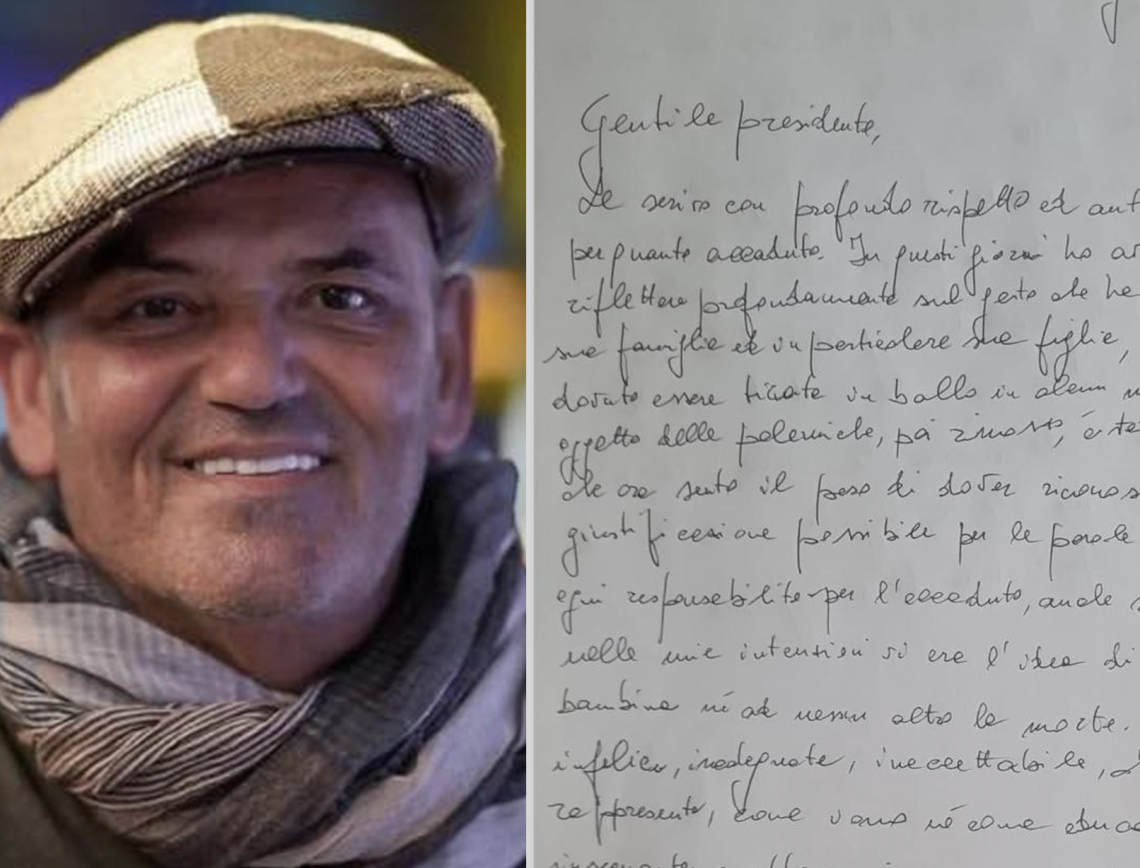 Gentile presidente,
Le scrivo con profondo rispetto ed aut
per quanto accaduto. In questi giorni ho
riflettere profondamente sul gesto che ha
sua famiglia ed in particolare Sua figlia,
dovuto essere tirata in ballo in alcun m
oggetto delle polemiche, poi rimosso, è
che ora sento il peso di dover riconos
giustificazione possibile per le parole
ogni responsabilità per l'accaduto, anche s
nelle mie intenzioni vi era l'idea di
bambina né ad nessun altro la morte.
infelice, inadeguata, inaccettabile,
rappresenta, come uomo né come educa